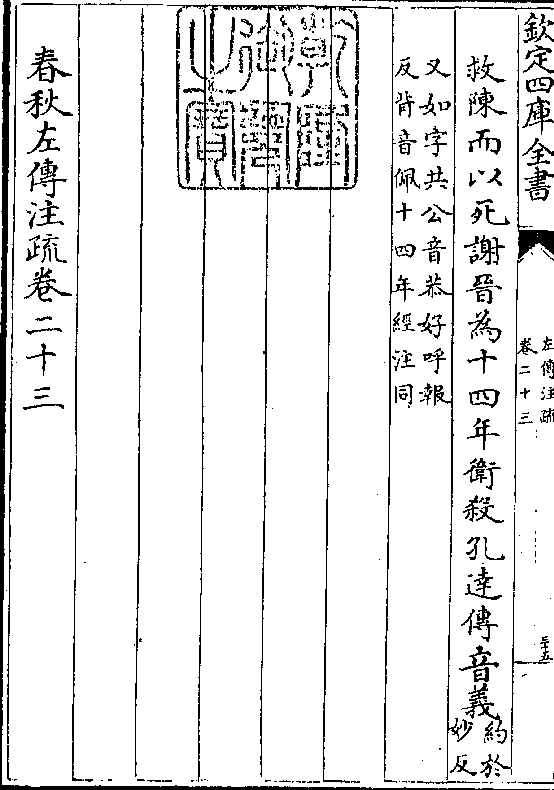 欽定四庫全書
左傳注疏
卷二十三
三十五
救陳而以死謝晉為十四年衛殺孔達傳音義約於
妙反
又如字共公音恭好呼報
反背音佩十四年經注同
乾隆
御覽
之寶
春秋左傳注疏卷二十三